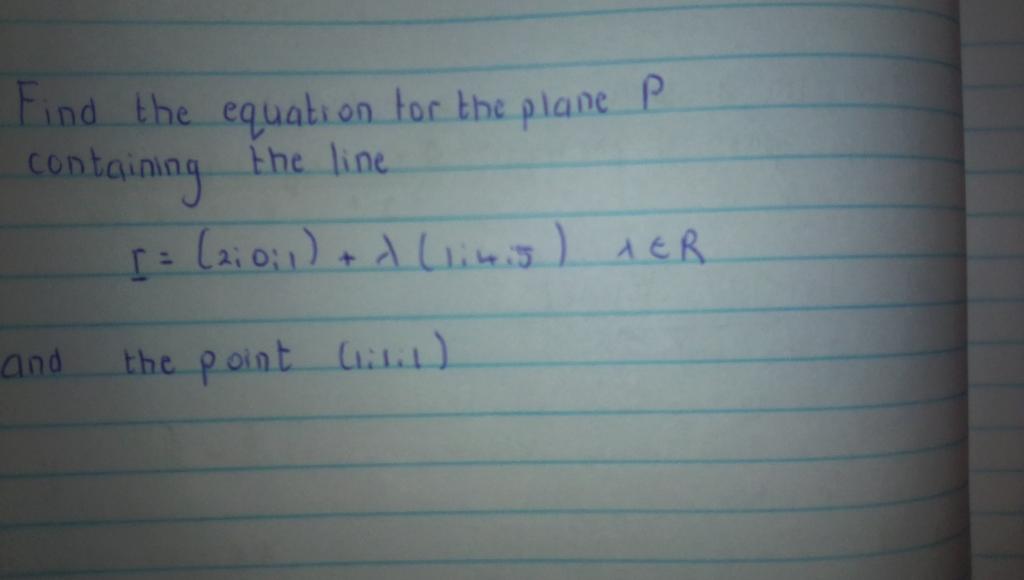 Find the equation for the plane P
containing the line
r = (2;0;1) + λ (1;4;5) λ ∈ R
and the point (1;1;1)